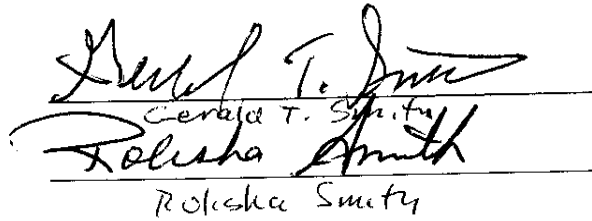 Gerald T. Smith
Gerald T. Smith
Rolisha Smith
Rolisha Smith